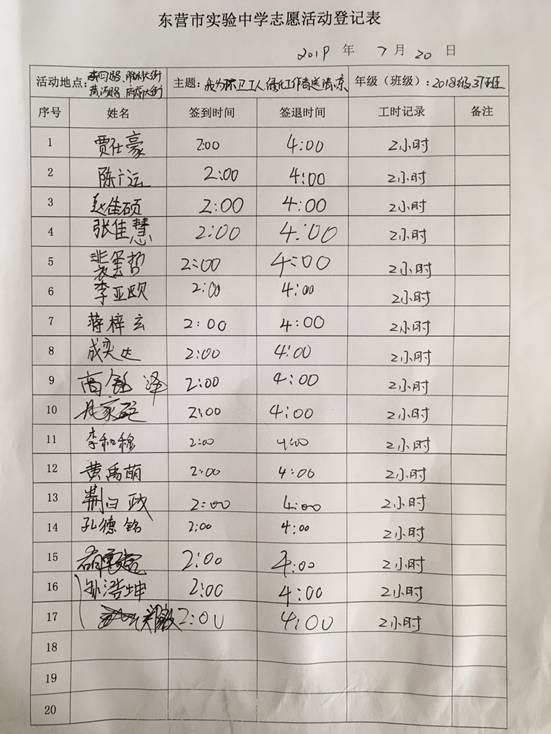 东营市实验中学志愿活动登记表
2019 年 7 月 20 日
活动地点: 主题: 我为环卫工人 年级（班级）: 2018级37班
序号 姓名 签到时间 签退时间 工时记录 备注
1 贾仕豪 2:00 4:00 2小时
2 陈广运 2:00 4:00 2小时
3 赵佳硕 2:00 4:00 2小时
4 张佳慧 2:00 4:00 2小时
5 2:00 4:00 2小时
6 李亚欧 2:00 4:00 2小时
7 蒋梓玄 2:00 4:00 2小时
8 成奕达 2:00 4:00 2小时
9 高 泽 2:00 4:00 2小时
10 2:00 4:00 2小时
11 李和穆 2:00 4:00 2小时
12 黄禹萌 2:00 4:00 2小时
13 荆曰政 2:00 4:00 2小时
14 孔德铭 2:00 4:00 2小时
15 2:00 4:00 2小时
16 孙浩坤 2:00 4:00 2小时
17 2:00 4:00 2小时
18
19
20